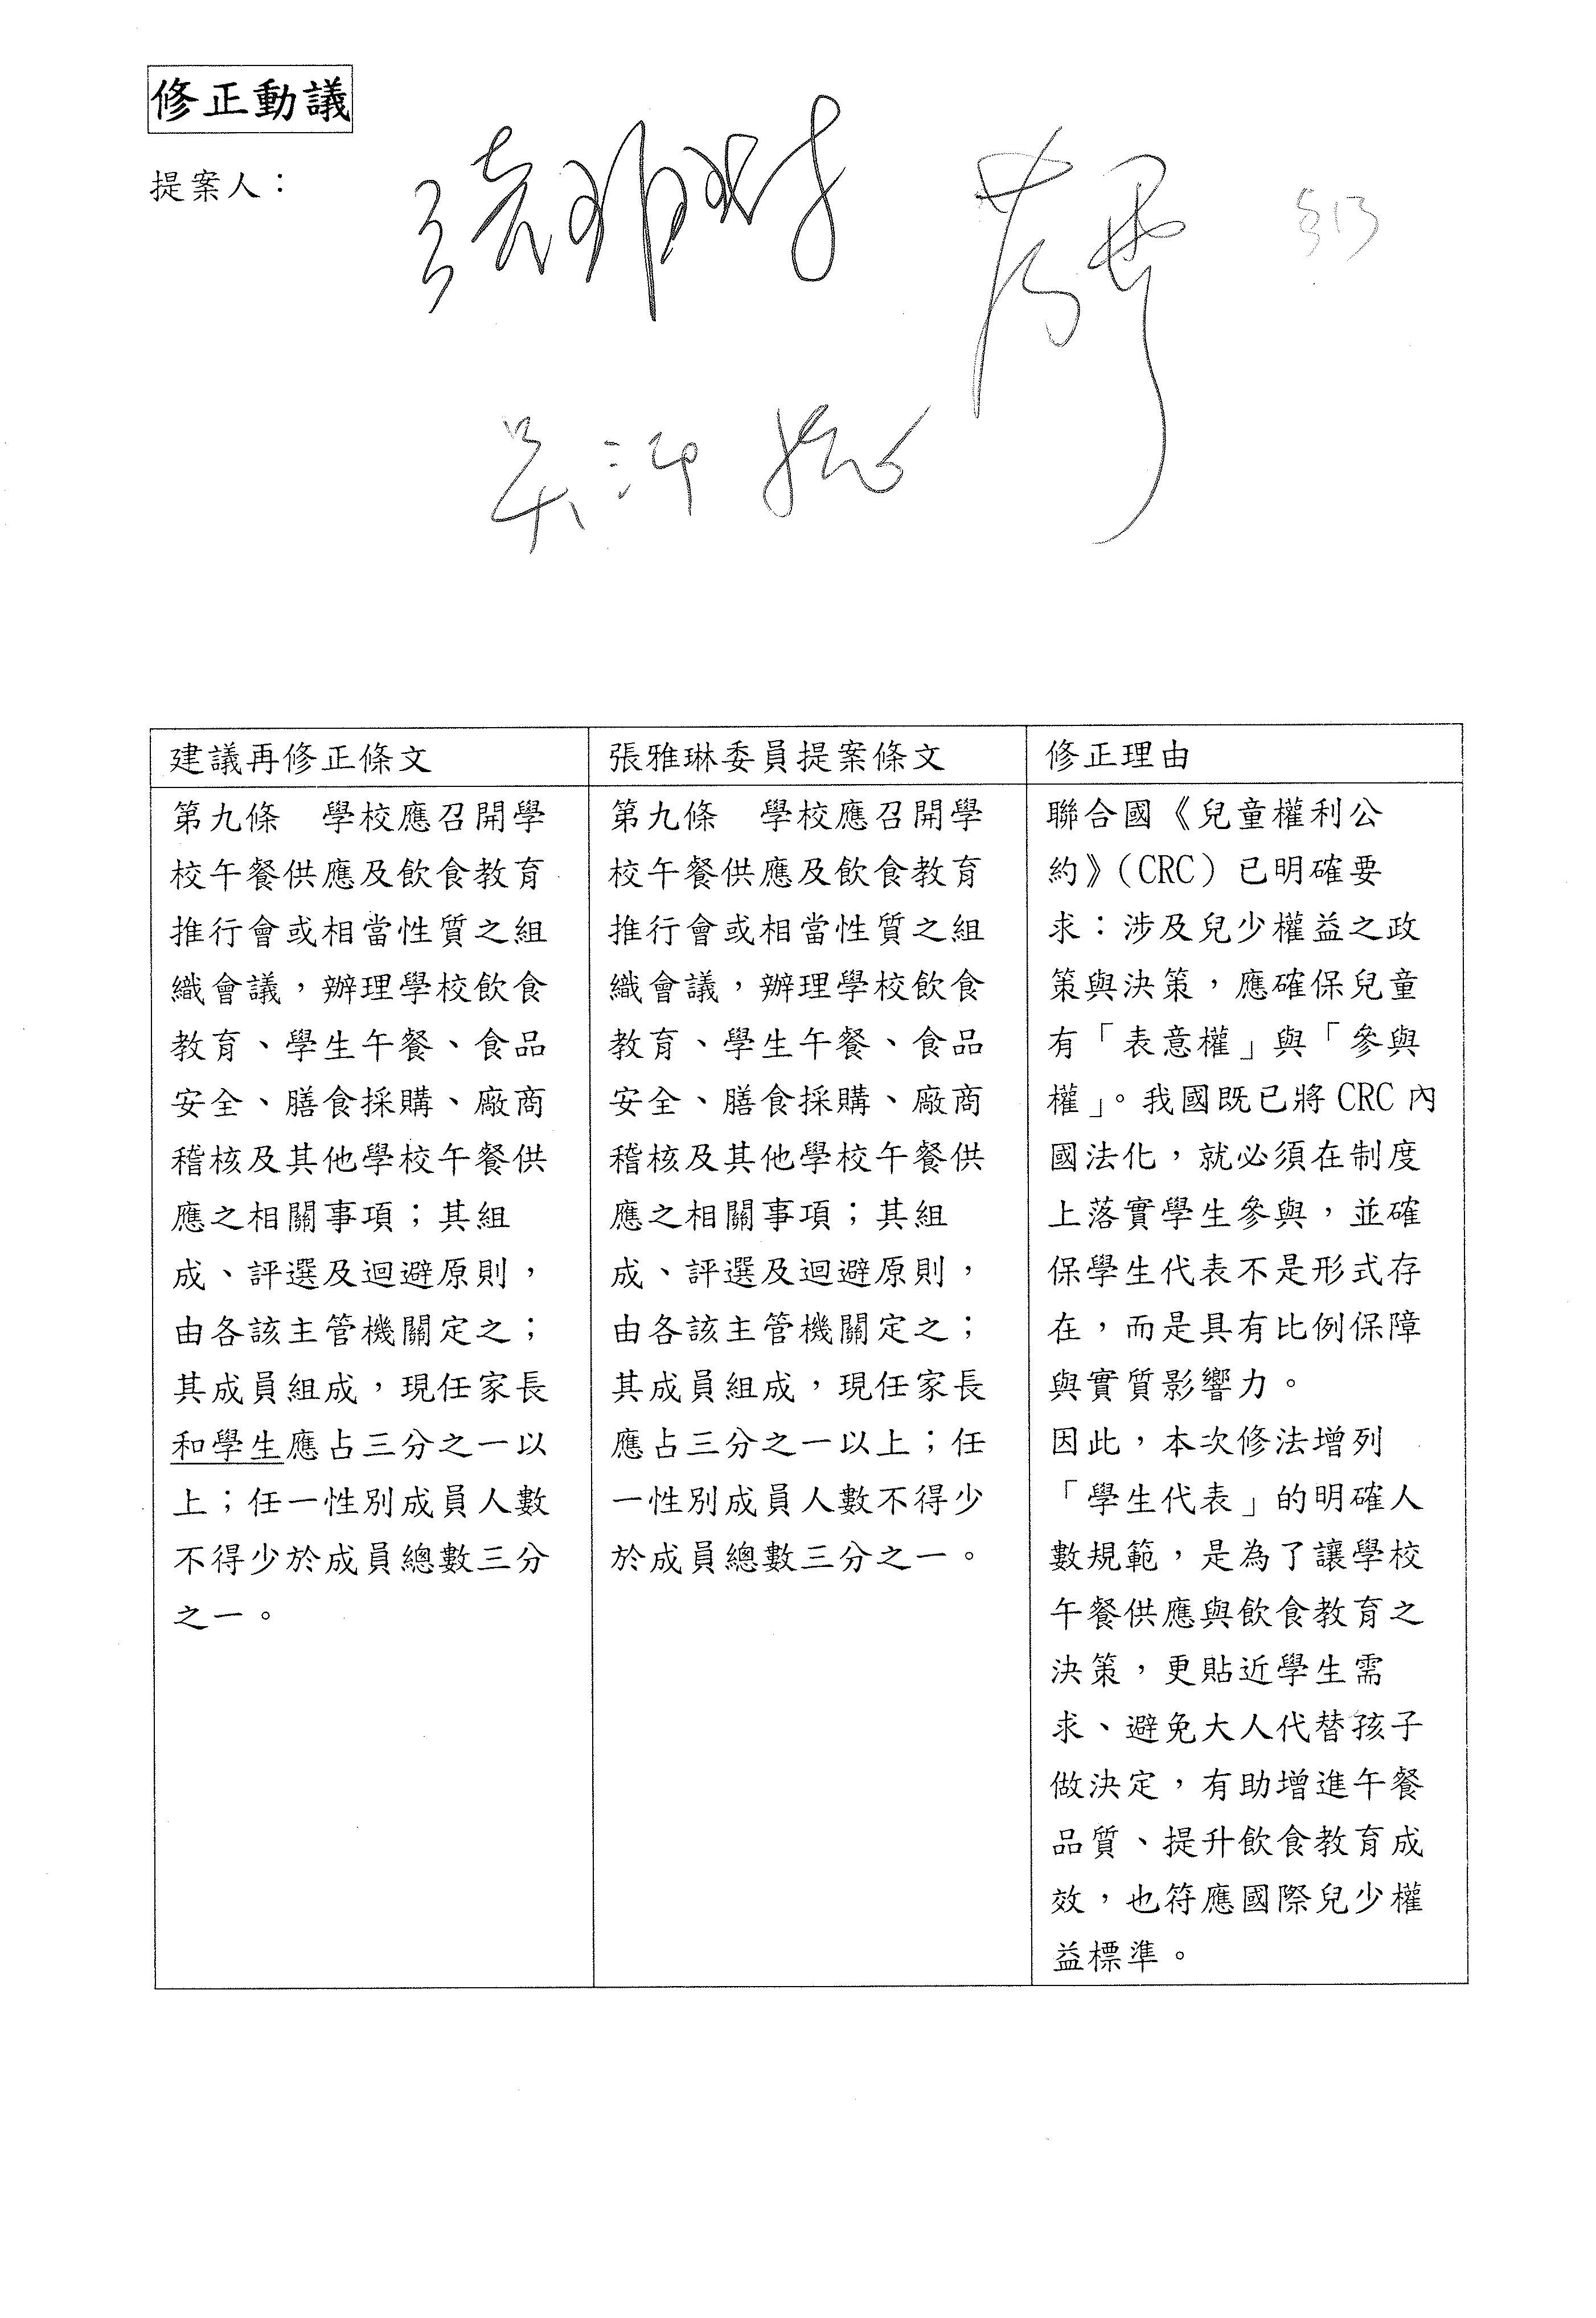 修正動議
提案人：
§13
建議再修正條文
第九條　學校應召開學
校午餐供應及飲食教育
推行會或相當性質之組
織會議，辦理學校飲食
教育、學生午餐、食品
安全、膳食採購、廠商
稽核及其他學校午餐供
應之相關事項；其組
成、評選及迴避原則，
由各該主管機關定之；
其成員組成，現任家長
和學生應占三分之一以
上；任一性別成員人數
不得少於成員總數三分
之一。
張雅琳委員提案條文
第九條　學校應召開學
校午餐供應及飲食教育
推行會或相當性質之組
織會議，辦理學校飲食
教育、學生午餐、食品
安全、膳食採購、廠商
稽核及其他學校午餐供
應之相關事項；其組
成、評選及迴避原則，
由各該主管機關定之；
其成員組成，現任家長
應占三分之一以上；任
一性別成員人數不得少
於成員總數三分之一。
修正理由
聯合國《兒童權利公
約》（CRC）已明確要
求：涉及兒少權益之政
策與決策，應確保兒童
有「表意權」與「參與
權」。我國既已將 CRC 內
國法化，就必須在制度
上落實學生參與，並確
保學生代表不是形式存
在，而是具有比例保障
與實質影響力。
因此，本次修法增列
「學生代表」的明確人
數規範，是為了讓學校
午餐供應與飲食教育之
決策，更貼近學生需
求、避免大人代替孩子
做決定，有助增進午餐
品質、提升飲食教育成
效，也符應國際兒少權
益標準。